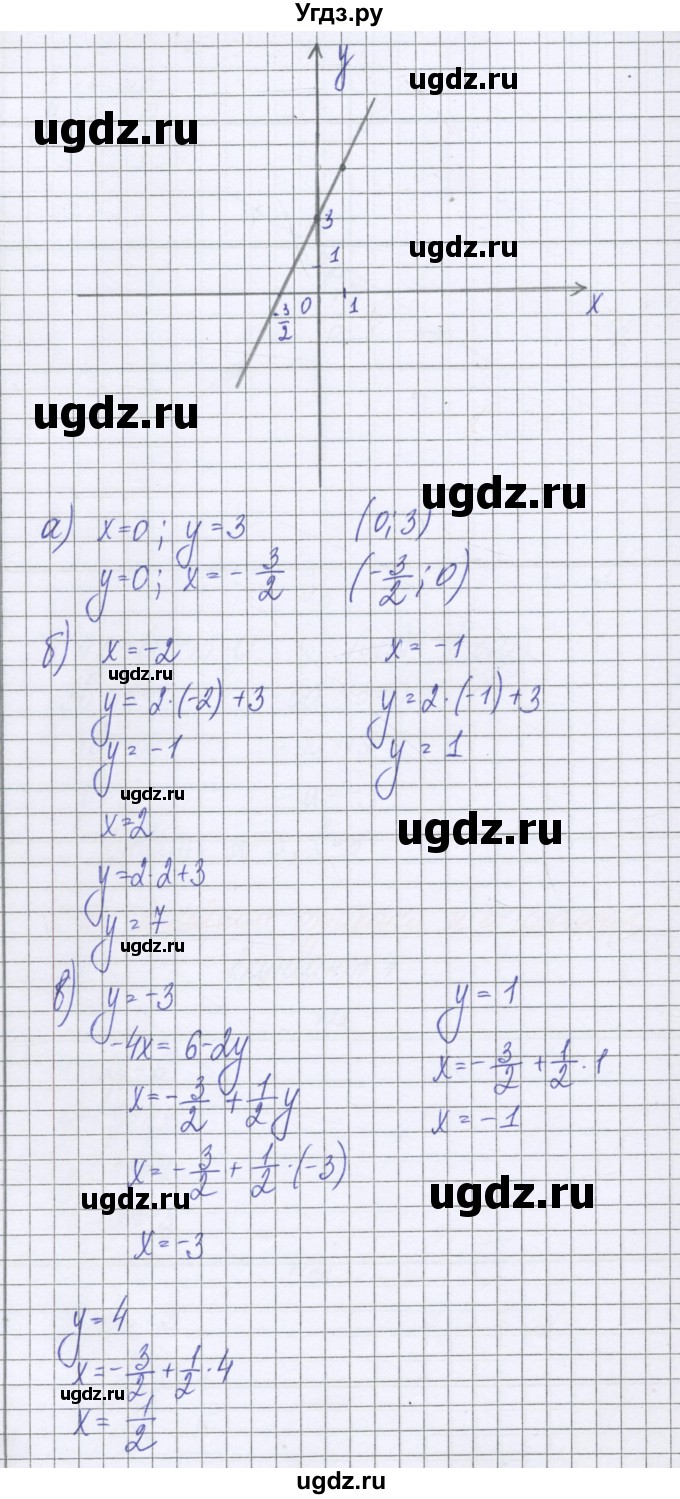 Угдз.ру
y
ugdz.ru
ugdz.ru
3
ugdz.ru
1
-3/2 0 1 x
ugdz.ru
ugdz.ru
а) x=0; y=3 (0;3)
y=0; x=-3/2 (-3/2;0)
б) x=-2 x=-1
ugdz.ru
y=2·(-2)+3 y=2·(-1)+3
y=-1 y=1
ugdz.ru
x=2 ugdz.ru
y=2·2+3
y=7
ugdz.ru
в) y=-3 y=1
-4x=6-2y x=-3/2+1/2·1
x=-3/2+1/2y x=-1
x=-3/2+1/2·(-3)
ugdz.ru ugdz.ru
x=-3
y=4
x=-3/2+1/2·4
ugdz.ru
x=1/2
ugdz.ru